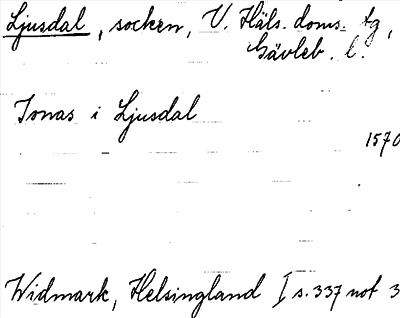 Ljusdal, socken, V. Häls. doms. tg,
Gävleb. l.
Jonas i Ljusdal
1570
Widmark, Helsingland I s. 337 not 3